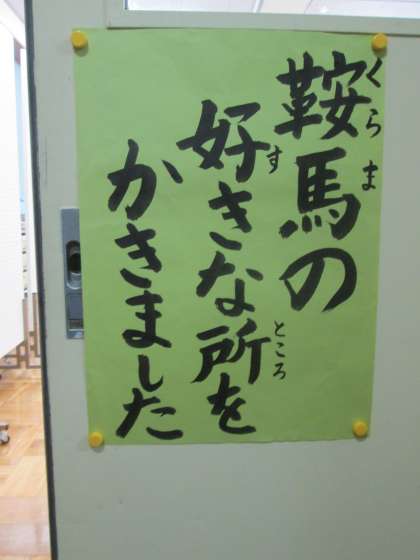 鞍馬の
くらま
好きな所を
す
ところ
かきました